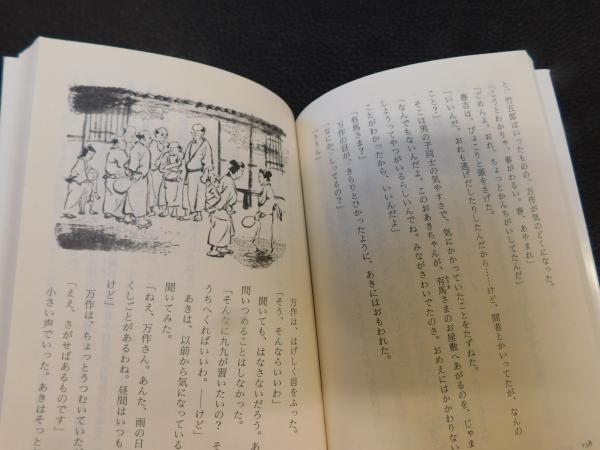 と、竹五郎はいったものの、万作が気のどくになった。
「こうとわかりゃ、春がわるい。春、あやまれ」
「ごめんよ。おれ、ちょっとかんちがいしてたんだ」
春吉は、ぴょこりと頭をさげた。
「いいんだ。おれも逃げだしたりしたんだから……けど、間者とかいってたが、なんの
ことう？」
そこは男の子同士の気やすさで、気にかかっていたことをたずねた。
「なんでもないんだよ。このおあきちゃんが、有馬さまのお屋敷へあがるのを、じゃま
しようってやつがいるらしいんでね。みながさわいでたのさ。おめえにはかかわりない
ことがわかったから、いいんだよ」
「有馬さま？」
万作の目が、きらりとひかったように、あきにはおもわれた。
「なにか、しってるの？」
「ううん」
138
万作は、はげしく首をふった。
「そう、そんならいいわ」
聞いても、はなさないだろう。あ
問いつめることはしなかった。
「そんなに九九が習いたいの？　そ
うちへくればいいわ。——けど」
あきは、以前から気になっている
聞いてみた。
「ねえ、万作さん。あんた、雨の日
くしごとがあるわね。昼間はいつも
けど」
万作は、ちょっとうつむいていた
「ええ、さがせばあるものです」
小さい声でいった。あきはそっと